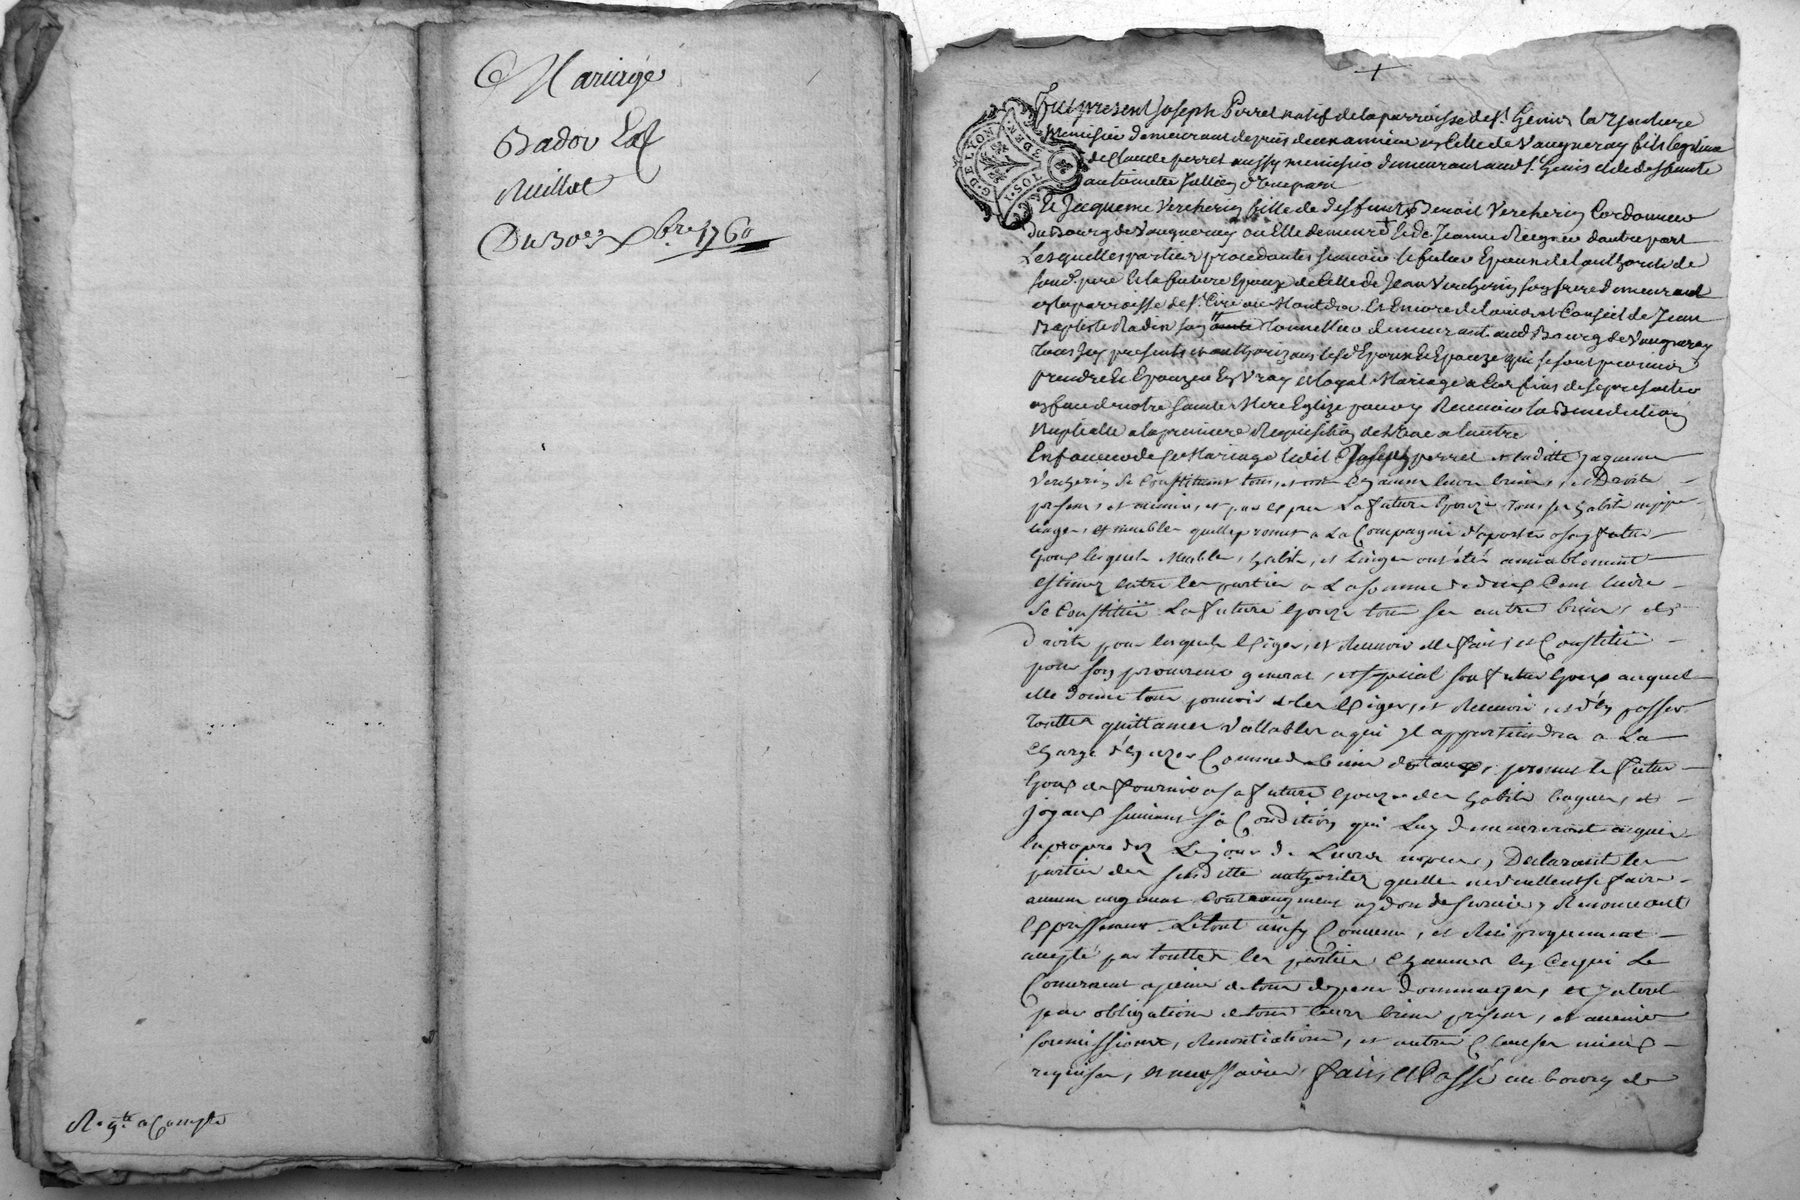 Mariage
Badou Et
Nuillat
Du 30e xbre 1760
Reg.te a Compte
G. DE LYON
Fut present Joseph Perret natif de la parroisse de St. Genis la
Menuisier demeurant depuis une année en celle de Vaugneray fils legitime
de Claude perret aussy menuisier demeurant aud St. Genis et de deffunte
antoinette Jullien d'une part
Et Jacqueme Vercherin fille de deffunt Benoit Vercherin Cordonnier
du Bourg de Vaugneray ou Elle demeure et de Jeanne d'autre part
Lesquelles parties procedantes scavoir le futur Epoux de l'authorité de
sond. pere Et la future Epouze de Celle de Jean Vercherin son frere demeurant
en la parroisse de St. Cire au Mont dor Et Encore de l'avis et Conseil de Jean
Baptiste Radix son demeurant aud Bourg de Vaugneray
tous Icy presents et authorizans lesd Epoux Et Epouze qui se sont promis
prendre Et Epouzer En Vray et loyal Mariage a Ces fins de se presenter
en face de notre Sainte Mere Eglize pour y Recevoir la Benediction
Nuptialle a la premiere Requisition de l'une a l'autre
En faveur de ce Mariage ledit Joseph perret et laditte Jaqueme
Vercherin se Constituent tous et Chacun leurs biens et Droits
presens, et avenir, et par exprès La future Epouze tous ses habits
linges, et meubles quelle promet a La Compagnie d'aporter a son futur
Epoux lesquels Meubles, habits, et Linges ont étés amiablement
estimez entre les parties a La somme de deux Cent livres
Se Constitüe La future Epouze tous ses autres biens, et
Droits pour lesquels Exiger, et Recevoir elle fait, et Constitüe
pour son procureur general, et special son futur Epoux auquel
elle donne tout pouvoir de les Exiger, et Recevoir, et d'en passer
touttes quittances Vallables a qui Il appartiendra a La
Charge d'en uzer Comme de biens dotaux, promet le futur
Epoux de fournir a sa future Epouze des habits bagues, et
joyaux suivant sa Condition qui Luy demeureront acquis
en propre dez Le jour de Leurs nopces, Declarant les
parties des susditte authoritez quelles ne veullent se faire
aucun augment Contraugment ny don de survie y Renonceant
Expressement. Le tout ainsy Convenu, et Reciproquement
accepté par touttes les parties Chacunes en Ce qui Le
Concernent a peine de tous depens dommages, et Interets
par obligations de tous leurs biens presens, et avenir
soumissions, Renontiations, et autres Clauses
requises, et necessaires. fait, et Passé au bourg de